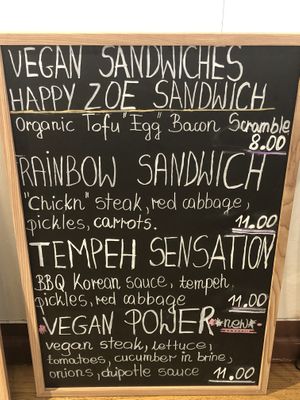 VEGAN SANDWICHES
HAPPY ZOE SANDWICH
Organic Tofu "Egg" Bacon Scramble
8.00
RAINBOW SANDWICH
"Chickn" steak, red cabbage,
pickles, carrots. 11.00
TEMPEH SENSATION
BBQ Korean sauce, tempeh,
pickles, red cabbage 11.00
VEGAN POWER *new*
vegan steak, lettuce,
tomatoes, cucumber in brine,
onions, chipotle sauce 11.00